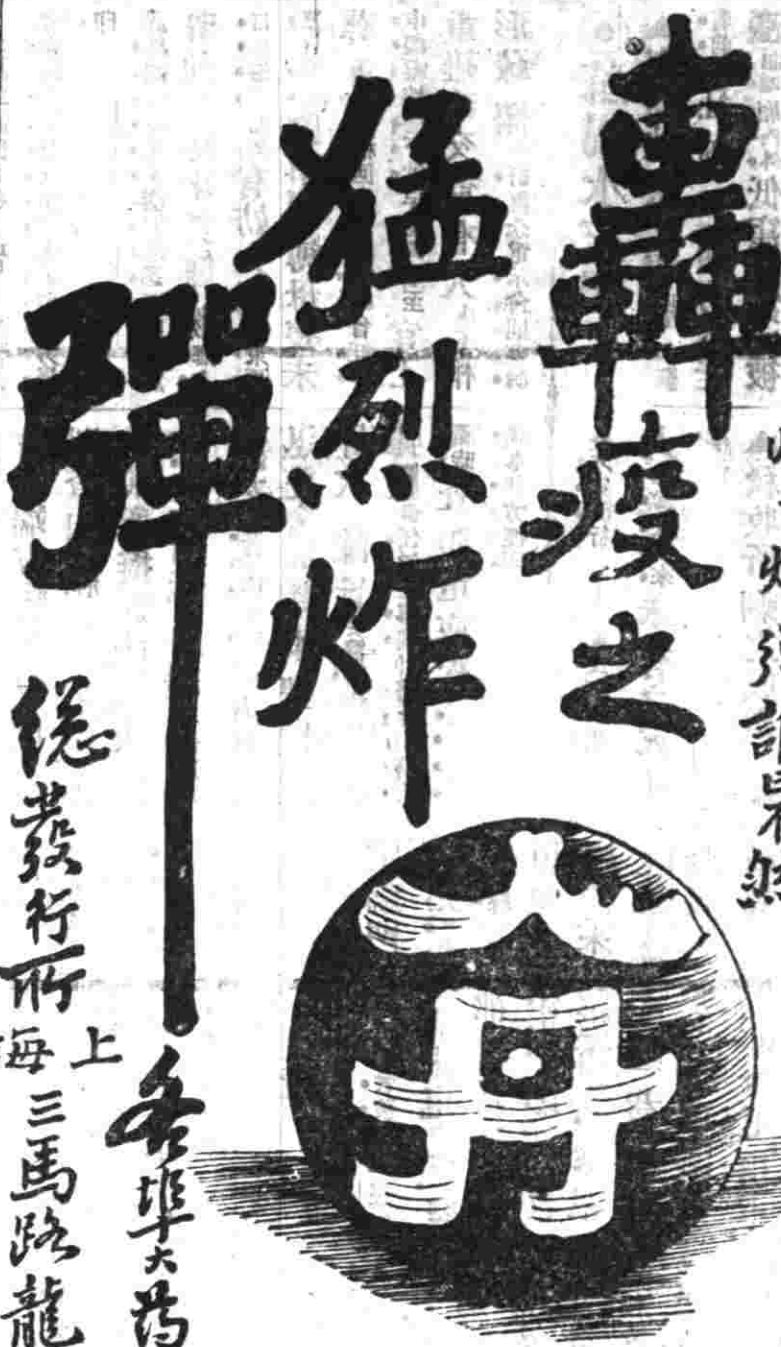 轟疫之
猛烈炸
彈
人丹
各埠大葯
緫發行所
上海
三馬路龍